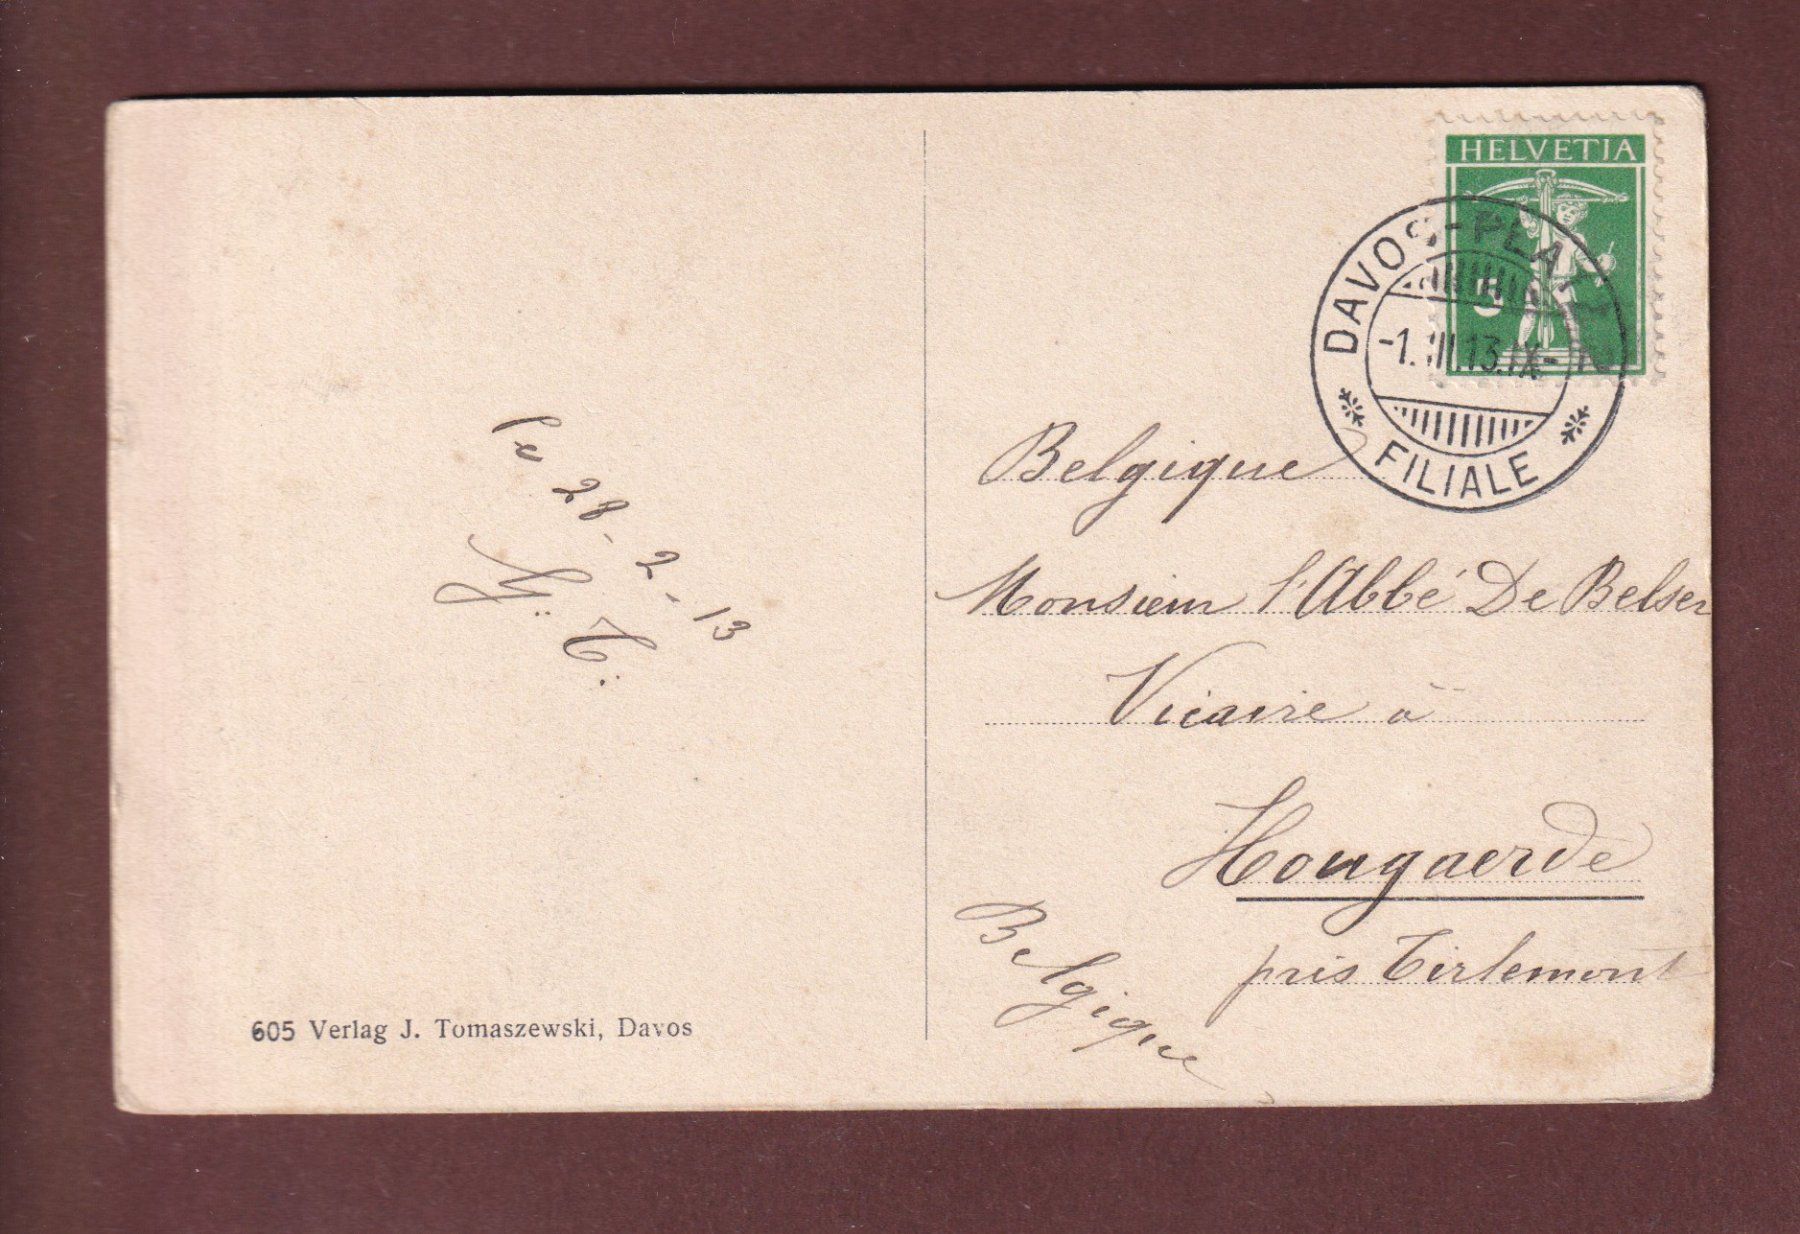 Le 28-2-13
605 Verlag J. Tomaszewski, Davos
HELVETIA
5
DAVOS-PLATZ
-1.III.13.IX-
FILIALE
Belgique
Monsieur l'Abbé De Belser
Vicaire à
Hougaerde
près Tirlemont
Belgique